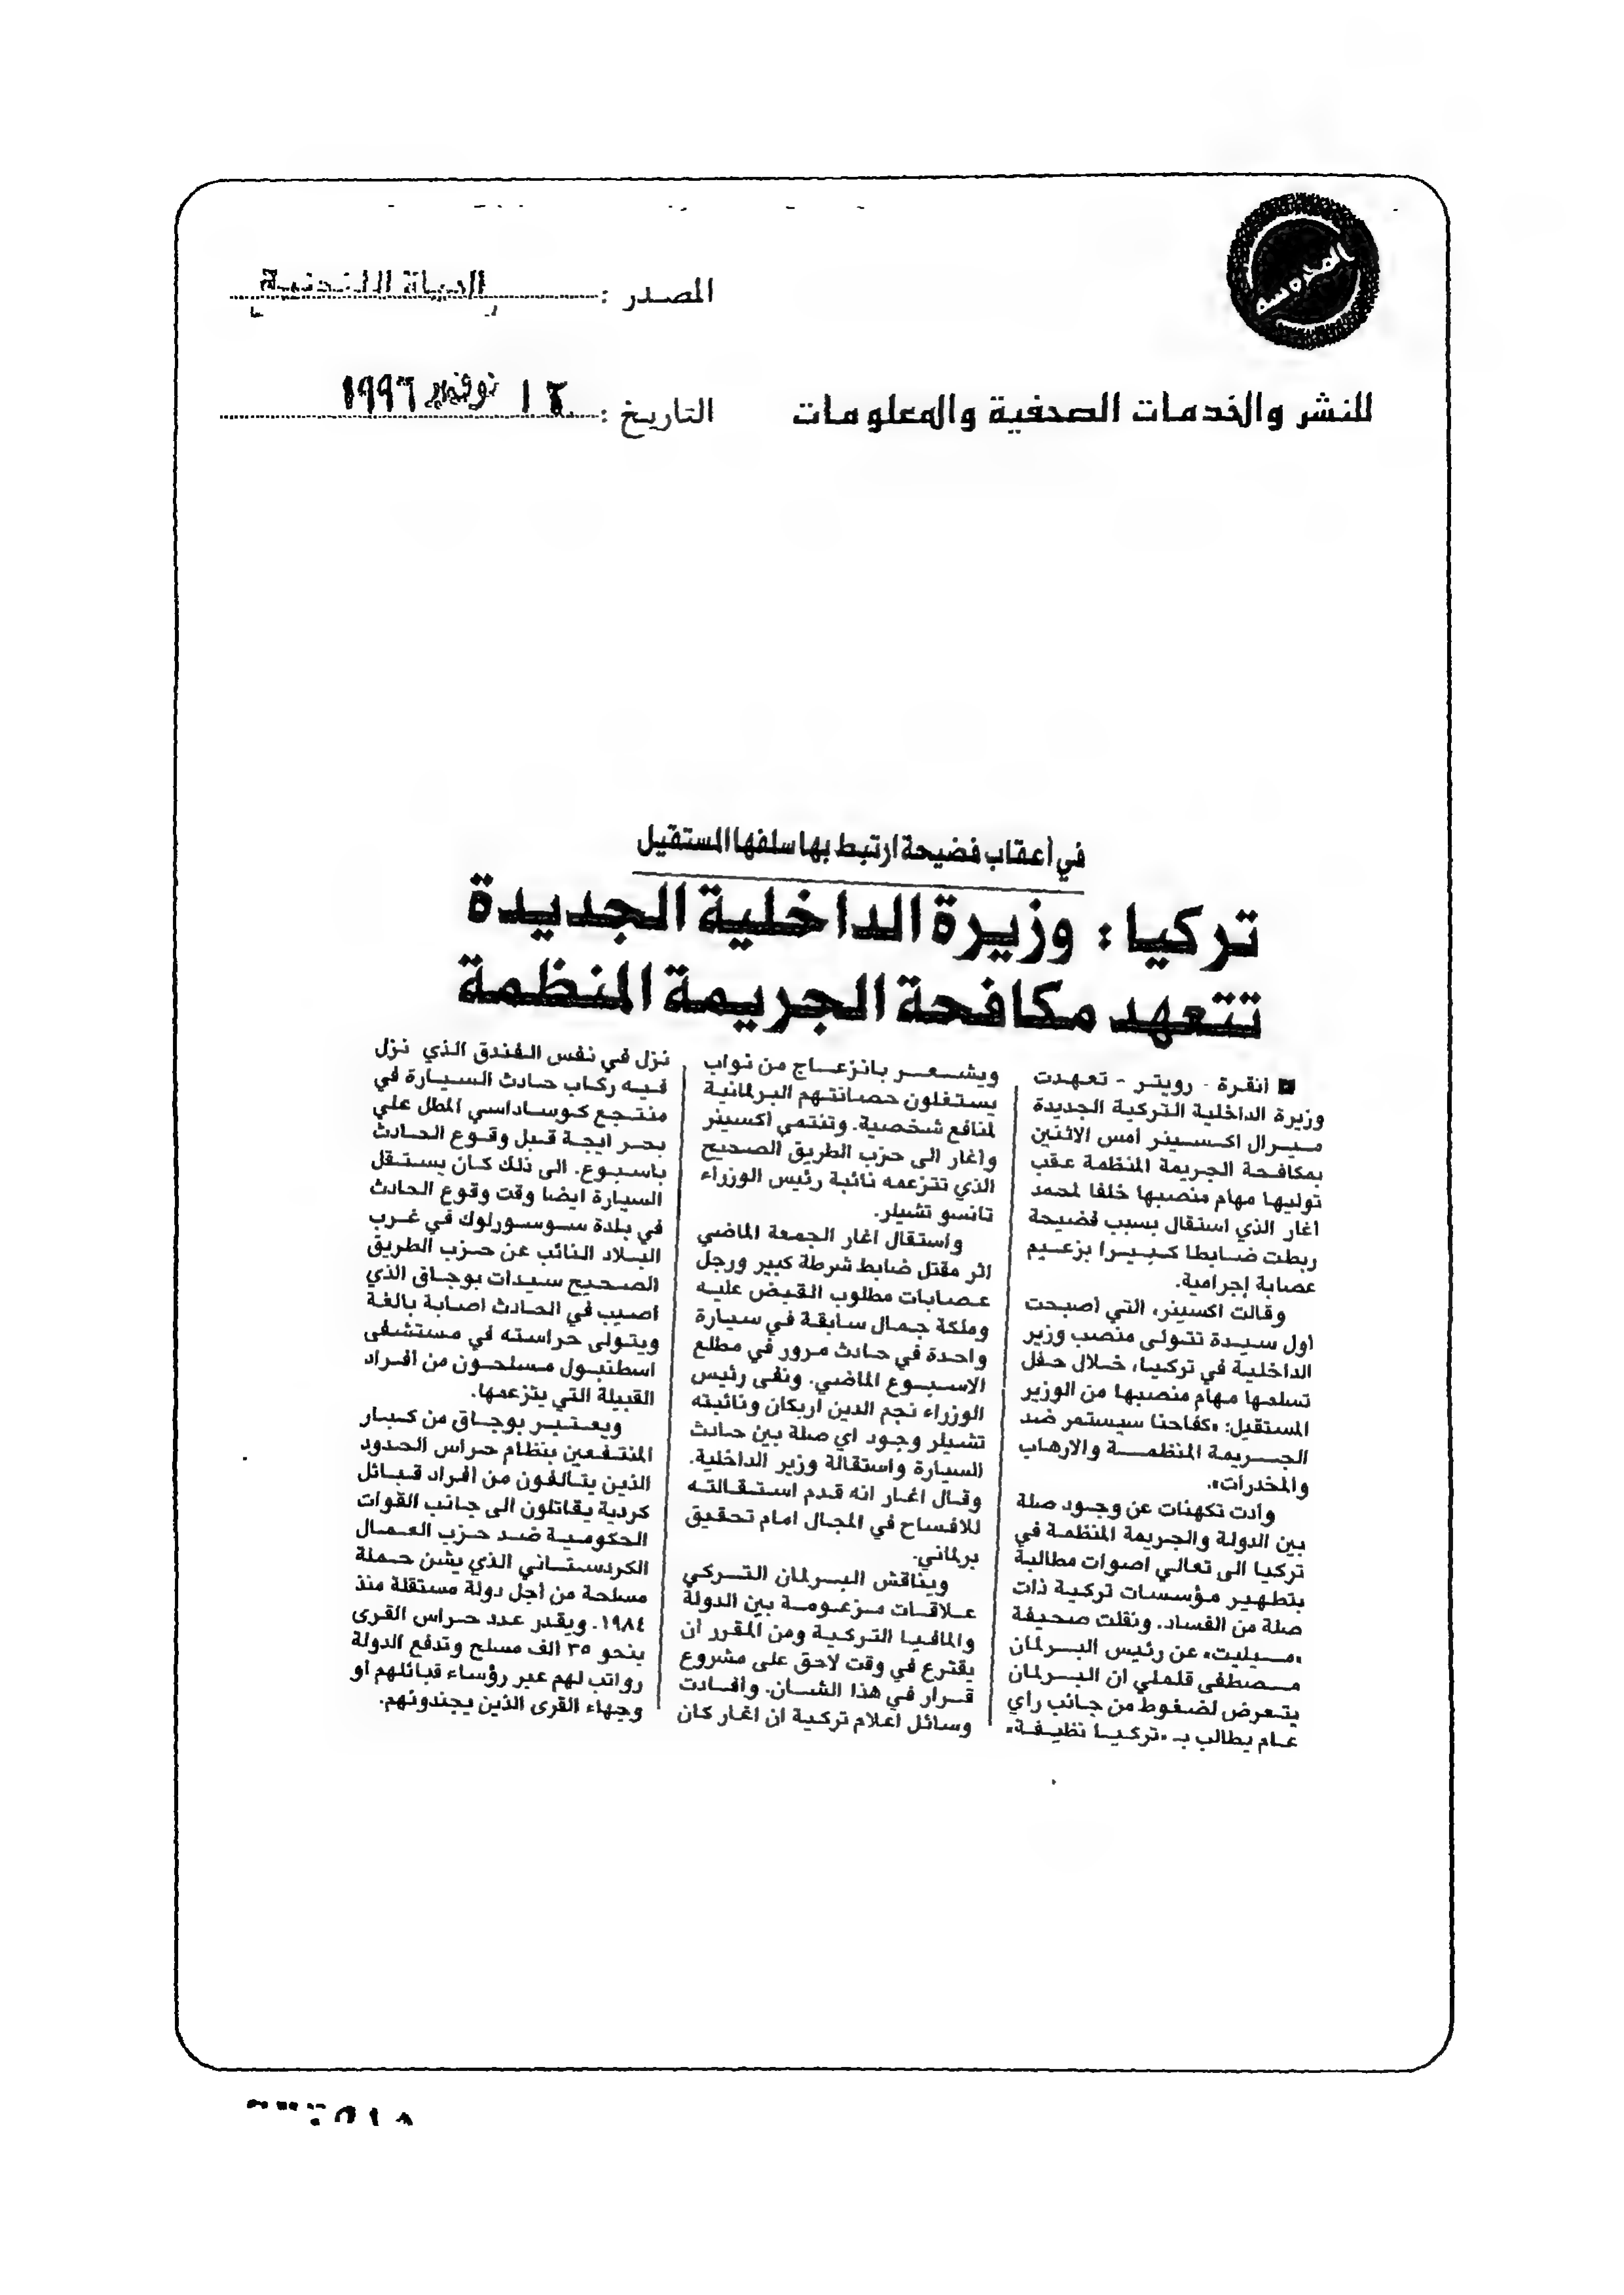 المصدر : الحياة اللندنية
التاريخ : ١٢ نوفمبر ١٩٩٦
للنشر والخدمات الصحفية والمعلومات
في أعقاب فضيحة ارتبط بها سلفها المستقيل
تركيا : وزيرة الداخلية الجديدة
تتعهد مكافحة الجريمة المنظمة
■ أنقرة - رويتر - تعهدت
وزيرة الداخلية التركية الجديدة
ميرال اكسينر أمس الاثنين
بمكافحة الجريمة المنظمة عقب
توليها مهام منصبها خلفا لمحمد
اغار الذي استقال بسبب فضيحة
ربطت ضابطا كبيرا بزعيم
عصابة إجرامية.
وقالت اكسينر، التي أصبحت
أول سيدة تتولى منصب وزير
الداخلية في تركيا، خلال حفل
تسلمها مهام منصبها من الوزير
المستقيل: «كفاحنا سيستمر ضد
الجريمة المنظمة والارهاب
والمخدرات».
وأدت تكهنات عن وجود صلة
بين الدولة والجريمة المنظمة في
تركيا الى تعالي اصوات مطالبة
بتطهير مؤسسات تركية ذات
صلة من الفساد. ونقلت صحيفة
«ميليت» عن رئيس البرلمان
مصطفى قلملي ان البرلمان
يتعرض لضغوط من جانب رأي
عام يطالب بـ «تركيا نظيفة»
ويشعر بانزعاج من نواب
يستغلون حصانتهم البرلمانية
لمنافع شخصية. وتنتمي اكسينر
واغار الى حزب الطريق الصحيح
الذي تتزعمه نائبة رئيس الوزراء
تانسو تشيلر.
واستقال اغار الجمعة الماضي
اثر مقتل ضابط شرطة كبير ورجل
عصابات مطلوب القبض عليه
وملكة جمال سابقة في سيارة
واحدة في حادث مرور في مطلع
الاسبوع الماضي. ونفى رئيس
الوزراء نجم الدين اربكان ونائبته
تشيلر وجود اي صلة بين حادث
السيارة واستقالة وزير الداخلية.
وقال اغار انه قدم استقالته
للافساح في المجال امام تحقيق
برلماني.
ويناقش البرلمان التركي
علاقات مزعومة بين الدولة
والمافيا التركية ومن المقرر ان
يقترع في وقت لاحق على مشروع
قرار في هذا الشان. وافادت
وسائل اعلام تركية ان اغار كان
نزل في نفس الفندق الذي نزل
فيه ركاب حادث السيارة في
منتجع كوساداسي المطل علي
بحر ايجة قبل وقوع الحادث
باسبوع. الى ذلك كان يستقل
السيارة ايضا وقت وقوع الحادث
في بلدة سوسورلوك في غرب
البلاد النائب عن حزب الطريق
الصحيح سيدات بوجاق الذي
اصيب في الحادث اصابة بالغة
ويتولى حراسته في مستشفى
اسطنبول مسلحون من افراد
القبيلة التي يتزعمها.
ويعتبر بوجاق من كبار
المنتفعين بنظام حراس الحدود
الذين يتالفون من افراد قبائل
كردية يقاتلون الى جانب القوات
الحكومية ضد حزب العمال
الكردستاني الذي يشن حملة
مسلحة من أجل دولة مستقلة منذ
١٩٨٤. ويقدر عدد حراس القرى
بنحو ٣٥ الف مسلح وتدفع الدولة
رواتب لهم عبر رؤساء قبائلهم او
وجهاء القرى الذين يجندونهم.